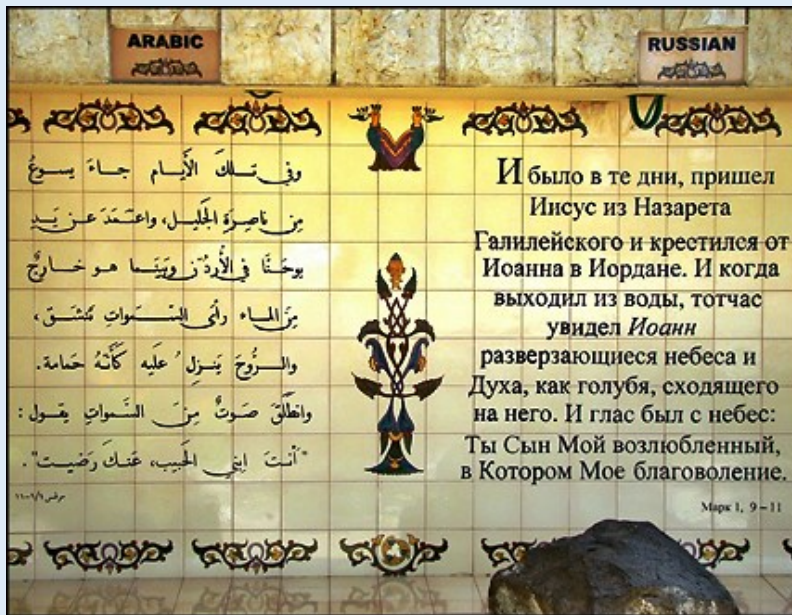 ARABIC
وفي تلك الأيام جاء يسوعُ
مِن ناصِرَة الجَليل، واعتَمَدَ عَن يَدِ
يوحَنّا في الأُردُنّ وبَينَما هو خارِجٌ
مِنَ الماء رأى السَّمَواتِ تَنشَقّ،
والرُّوحَ يَنزِلُ علَيه كأَنَّهُ حَمامة.
وانطَلَقَ صَوتٌ مِنَ السَّمَواتِ يقول:
"أَنتَ ابني الحَبيب، عَنكَ رَضيت".
مرقس ١/٩-١١
RUSSIAN
И было в те дни, пришел
Иисус из Назарета
Галилейского и крестился от
Иоанна в Иордане. И когда
выходил из воды, тотчас
увидел Иоанн
разверзающиеся небеса и
Духа, как голубя, сходящего
на него. И глас был с небес:
Ты Сын Мой возлюбленный,
в Котором Мое благоволение.
Марк 1, 9 – 11